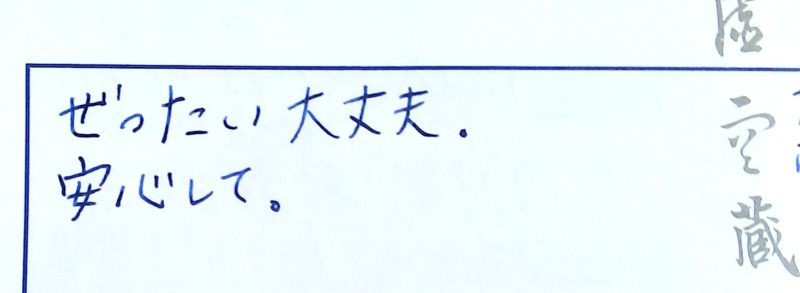 ぜったい大丈夫.
安心して。
虚空蔵